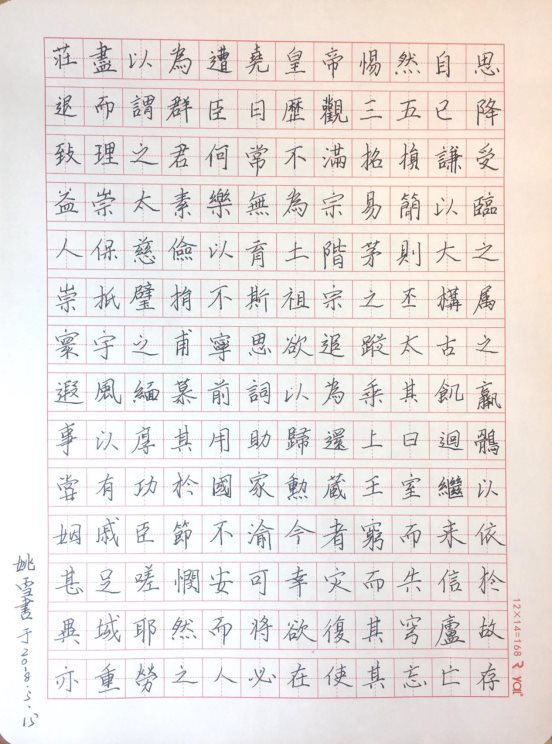 莊盡以為遭堯皇帝惕然自思
退而謂群臣曰歷觀三五已降
致理之君何常不滿招損謙受
益崇太素樂無為宗易簡以臨
人保慈儉以育土階茅則大之
崇抵璧捐不斯祖宗之丕構属
寰宇之甫寧思欲追蹤太古之
遐風緬慕前詞以為乘其飢羸
事以厚其用助歸還上曰迴鶻
嘗有功於國家勲蔵王室繼以
姻戚臣節不渝今者窮而来依
甚足嗟憫安可幸灾而失信於
異域耶然而将欲復其穹廬故
亦重勞之人必在使其忘亡存
姚雪書于2018.5.15
12×14=168